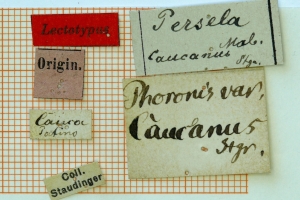 Lectotypus
Origin.
Cauca
Coll.
Staudinger
Persela
Mab.
Caucanus
Stgr.
Phoronis var.
Caucanus
Stgr.